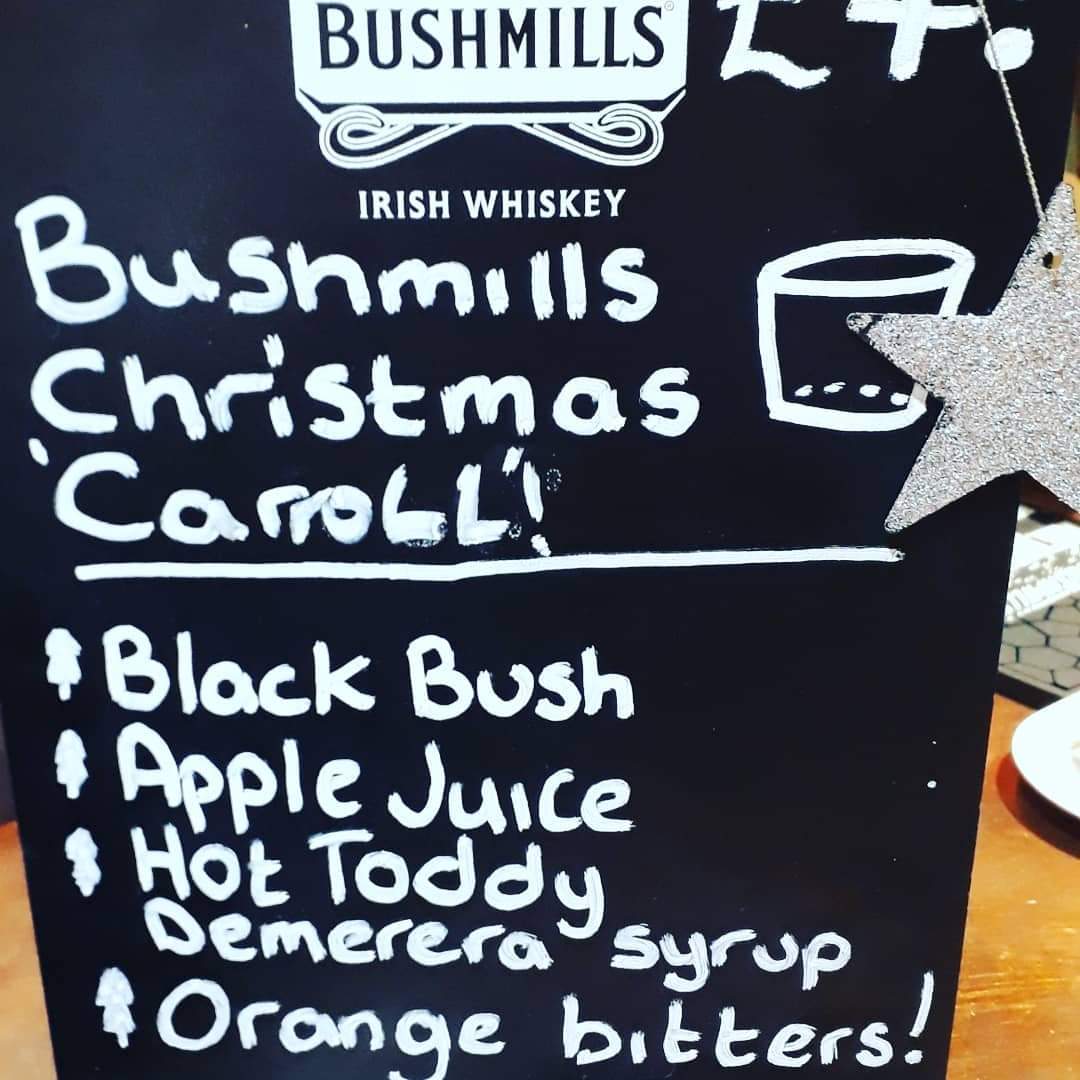 BUSHMILLS® £4.
IRISH WHISKEY
Bushmills
Christmas
'CarroLL'!
Black Bush
Apple Juice
Hot Toddy
Demerera syrup
Orange bitters!